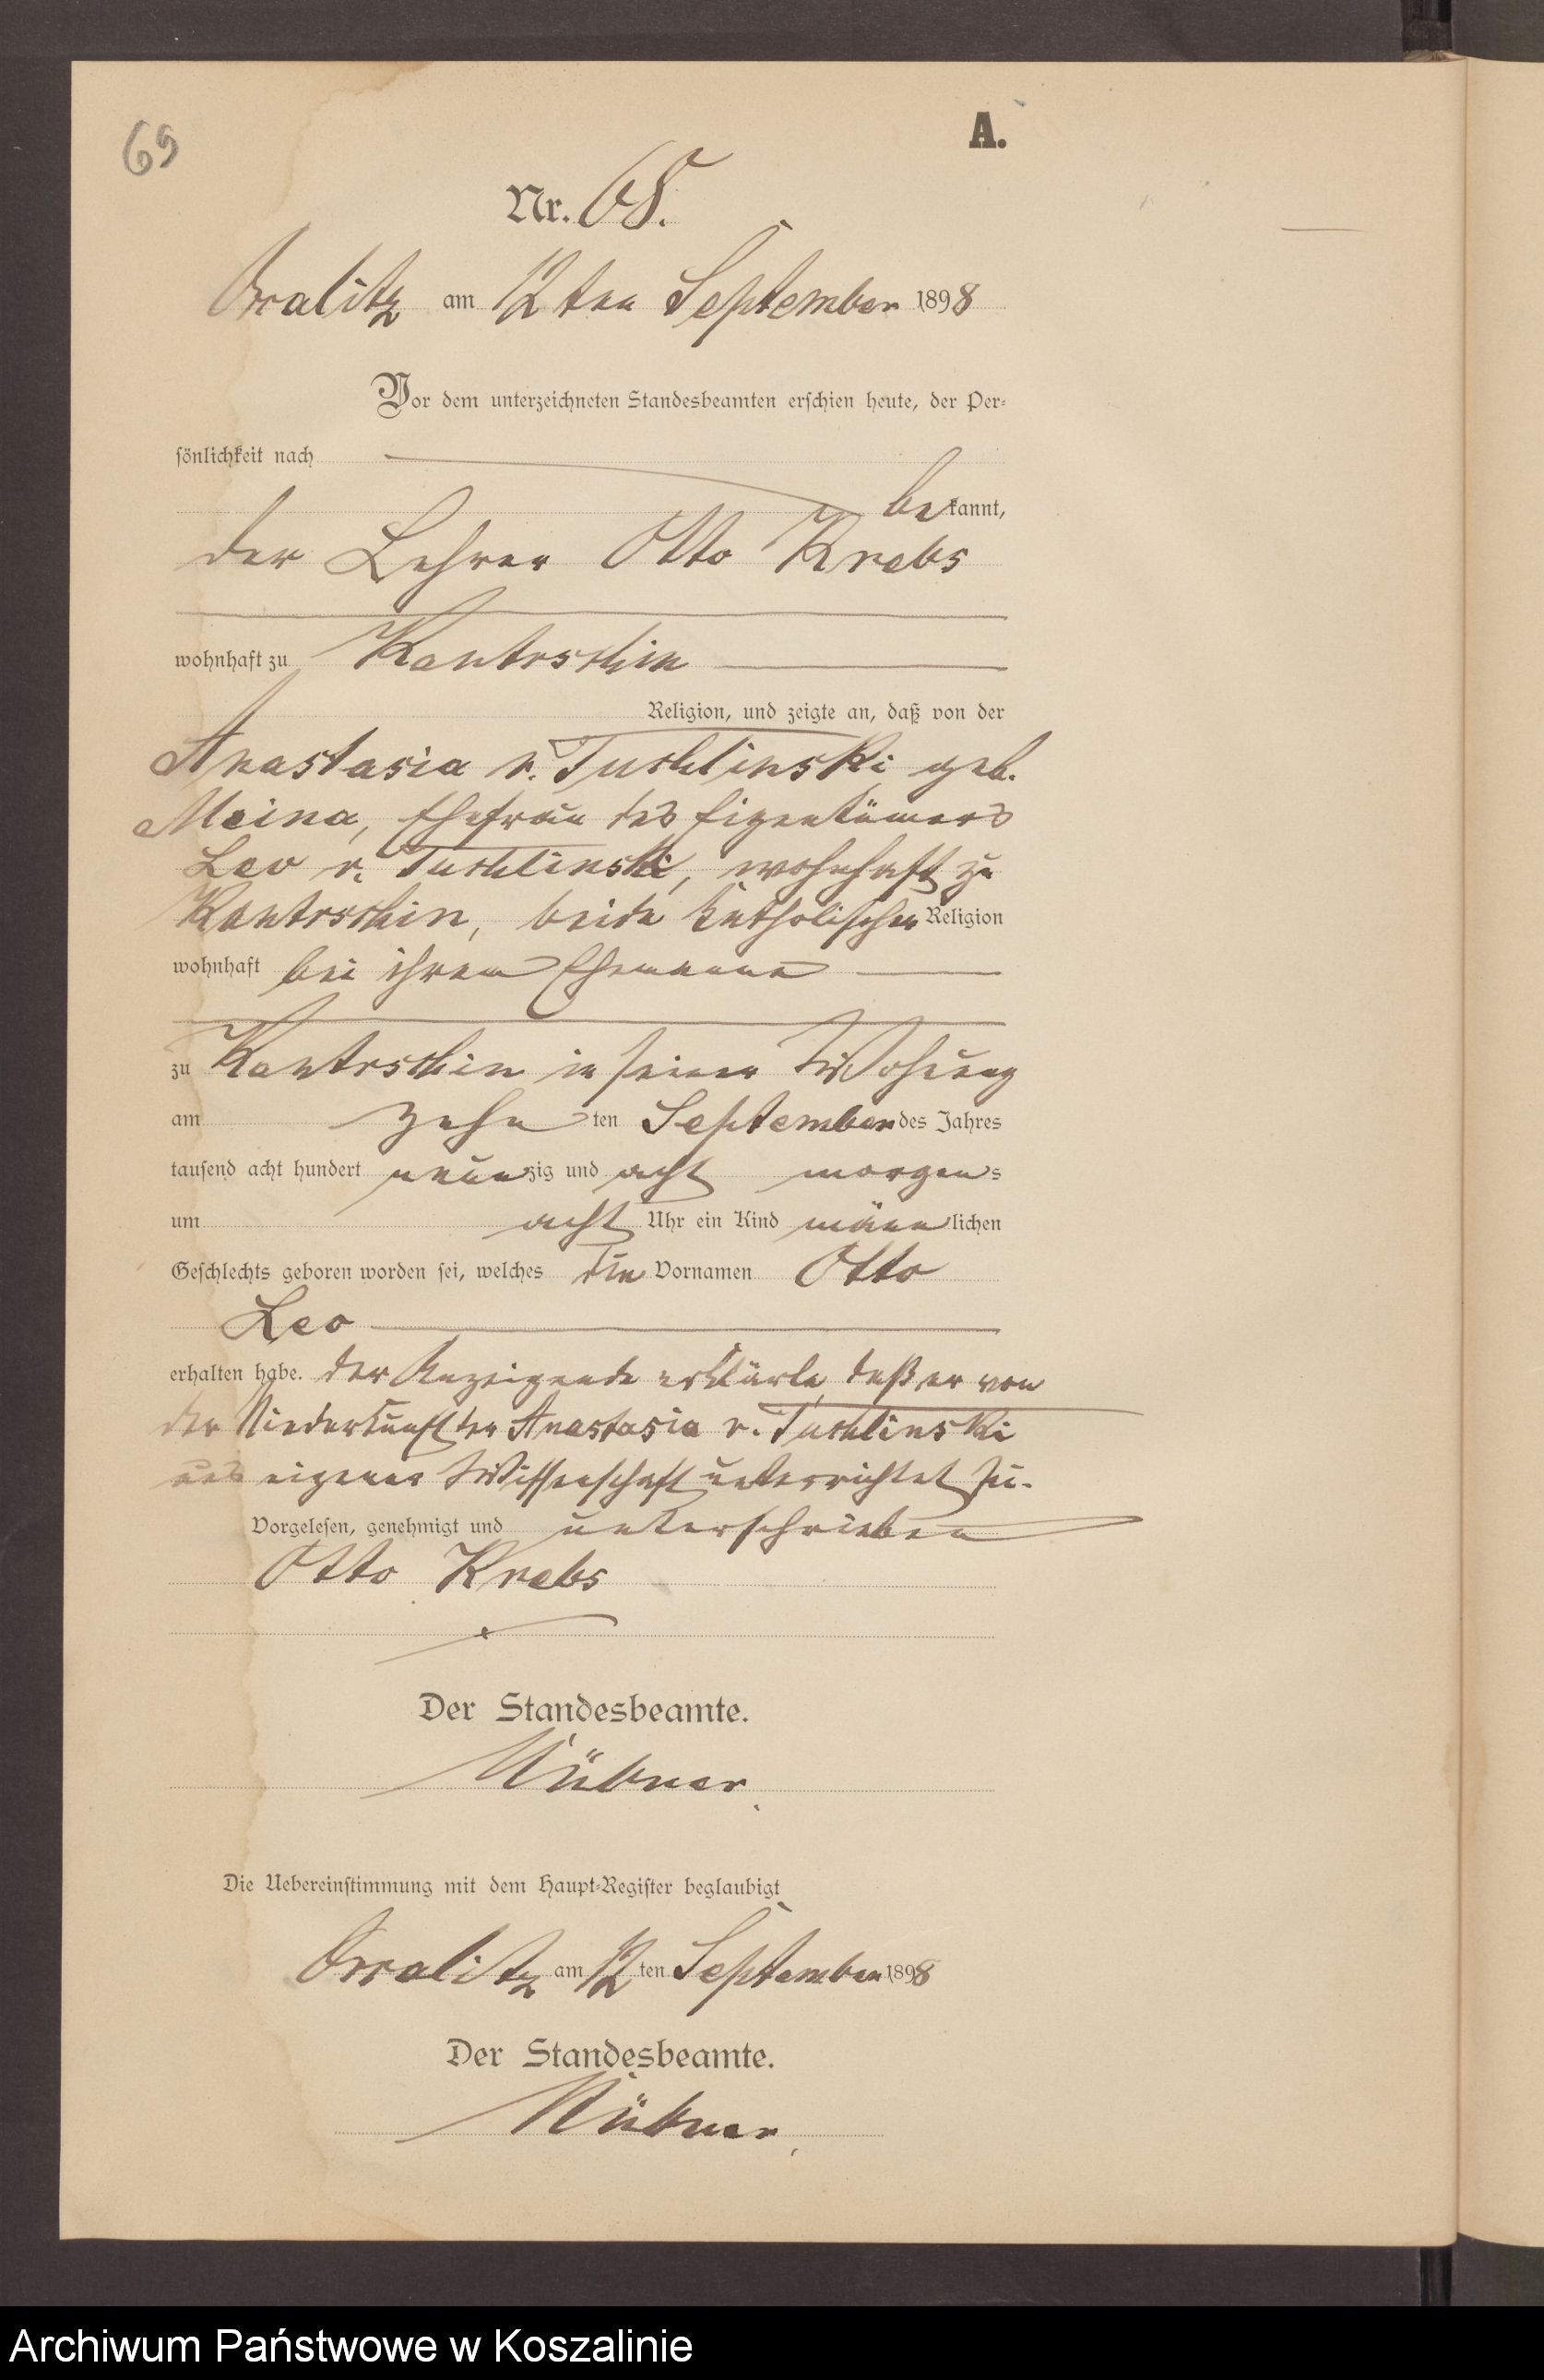 69
A.
Nr. 68.
Oſſalitz am 12ten September 1898
Vor dem unterzeichneten Standesbeamten erſchien heute, der Per-
ſönlichkeit nach
bekannt,
der Lehrer Otto Krebs
wohnhaft zu Kantrschin
Religion, und zeigte an, daß von der
Anastasia v. Tuchlinski, geb.
Meina, Ehefrau des Eigentümers
Leo v. Tuchlinski, wohnhaft zu
Kantrschin, beide katholischer Religion
wohnhaft bei ihrem Ehemanne
zu Kantrschin in seiner Wohnung
am zehnten September des Jahres
tauſend acht hundert neunzig und acht morgens
um acht Uhr ein Kind männlichen
Geſchlechts geboren worden ſei, welches die Vornamen Otto
Leo
erhalten habe. Der Anzeigende erklärte, daß er von
der Niederkunft der Anastasia v. Tuchlinski
aus eigener Wissenschaft unterrichtet sei.
Vorgeleſen, genehmigt und unterschrieben
Otto Krebs
Der Standesbeamte.
Die Uebereinſtimmung mit dem Haupt-Regiſter beglaubigt
Oſſalitz am 12ten September 1898
Der Standesbeamte.
Archiwum Państwowe w Koszalinie